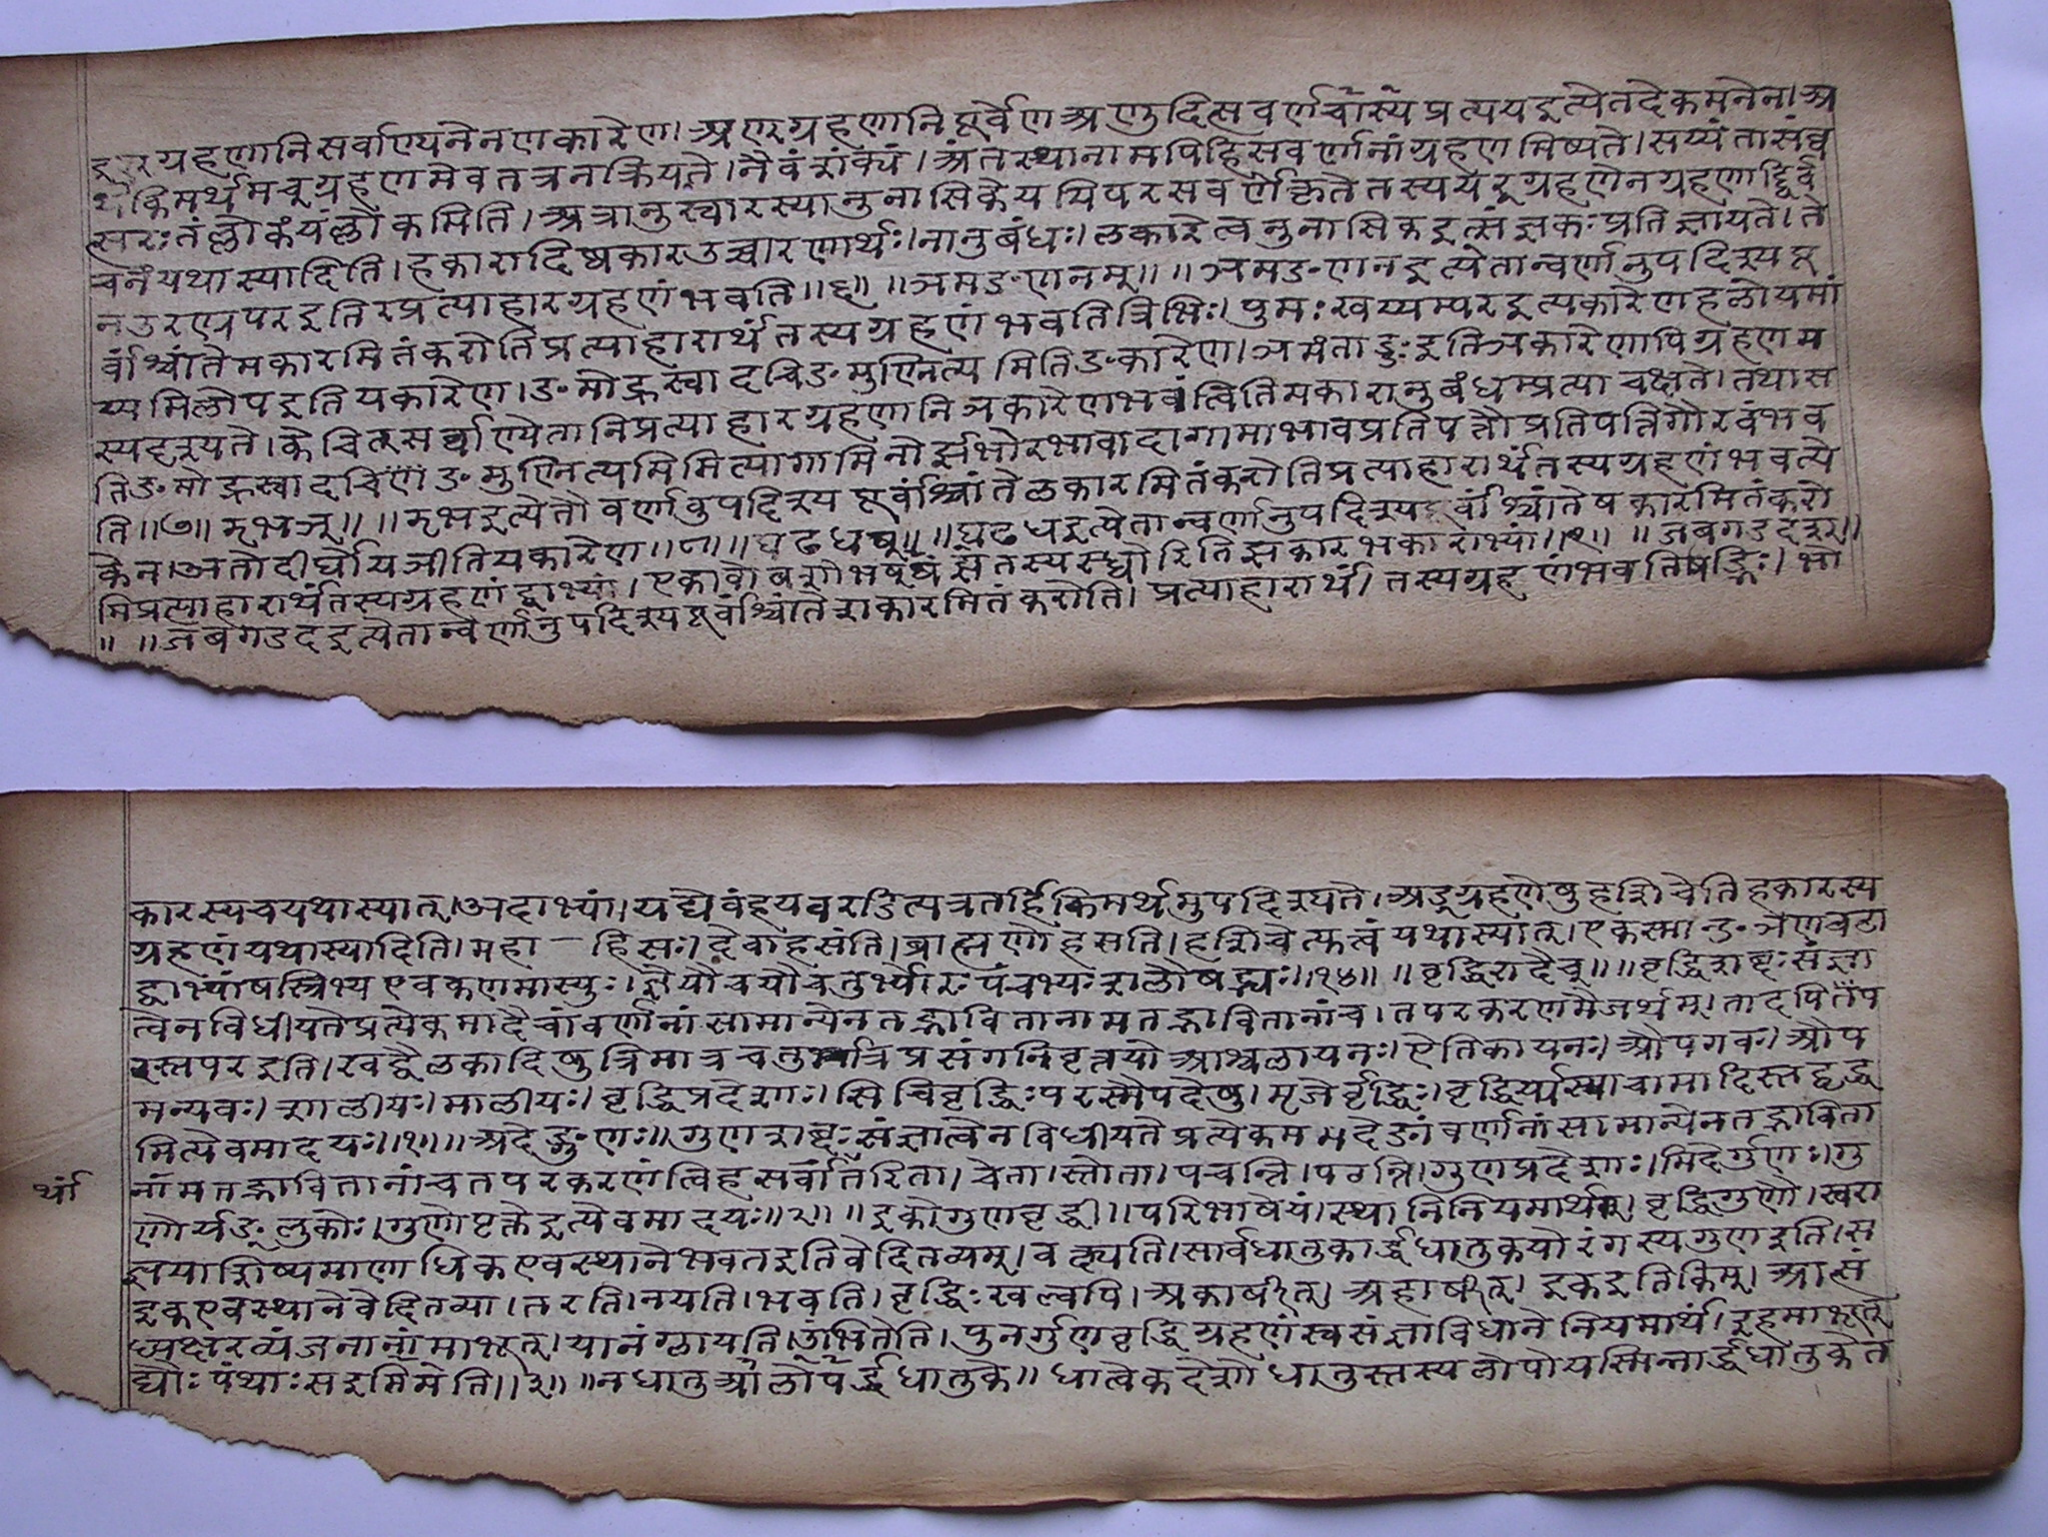 इण्ग्रहणानि सर्वाण्यनेन णकारेण। अण्ग्रहणानि पूर्वेण अणुदित्सवर्णस्य चाप्रत्यय इत्येतदेकमनेन। अ
थ किमर्थमच्ग्रहणमेव तत्र न क्रियते। नैवं शंक्यं। अंतस्थानामपि हि सवर्णनां ग्रहणमिष्यते। सय्यंता संव्व
त्सरः तंल्लोकं यंल्लोकमिति। अत्रानुस्वारस्यानुनासिके ययि परसवर्णे कृते तस्य यर्ग्रहणेन ग्रहणाद्द्विर्व
चनं यथा स्यादिति। हकारादिष्वकार उच्चारणार्थः। नानुबंधः। लकारे त्वनुनासिक इत्संज्ञकः प्रतिज्ञायते। ते
न उरण्रपर इति र प्रत्याहारग्रहणं भवति॥६॥ ॥ञमङणनम्॥ ॥ञमङणन इत्येतान्वर्णानुपदिश्य पू
र्वांश्चांते मकारमितं करोति प्रत्याहारार्थं तस्य ग्रहणं भवति त्रिभिः। पुमः खय्यम्पर इत्यकारेण हलो यमां
य्यमि लोप इति यकारेण। ङमो ह्रस्वादचि ङमुण्नित्यमिति ङकारेण। ञमंताड्डः इति ञकारेणापि ग्रहणम
स्य दृश्यते। केचित्सर्वाण्येतानि प्रत्याहारग्रहणानि ञकारेण भवंत्विति मकारानुबंधम्प्रत्याचक्षते। तथा स
ति ङमो ह्रस्वादचि ङमुण्नित्यमित्यागामिनोर्झभोरभावादागामाभाव प्रतिपत्तौ प्रतिपत्तिगौरवं भव
ति॥७॥ झभञ्॥ ॥झभ इत्येतौ वर्णावुपदिश्य पूर्वांश्चांते ञकारमितं करोति प्रत्याहारार्थं तस्य ग्रहणं भवत्ये
केन। अतो दीर्घो यञीति यकारेण॥८॥ ॥घढधष्॥ ॥घढध इत्येतान्वर्णानुपदिश्य पूर्वांश्चांते षकारमितं करो
मि प्रत्याहारार्थं तस्य ग्रहणं द्वाभ्यां। एकाचो बशो भष् झषंतस्य स्ध्वोरिति झकारभकाराभ्यां॥९॥ ॥जबगडदश्॥
॥ ॥जबगडद इत्येतान्वर्णानुपदिश्य पूर्वांश्चांते शकारमितं करोति। प्रत्याहारार्थं। तस्य ग्रहणं भवति षड्भिः। भो
कारस्य च यथा स्यात्। अदाभ्यां। यद्येवं हयवरडित्यत्र तर्हि किमर्थमुपदिश्यते। अड्ग्रहणेषु हशि चेति हकारस्य
ग्रहणं यथा स्यादिति। महा — हि सः। देवा हसंति। ब्राह्मणो हसति। हशि चेत्यत्वं यथा स्यात्। एकस्मान्ङञणवटा
द्वाभ्यां षस्त्रिभ्य एव कणमास्युः। ज्ञेयौ चयौ चतुर्भ्यो रः पंचभ्यः शलौ षड्भ्यः॥१४॥ ॥वृद्धिरादैच्॥ ॥वृद्धिशब्दः संज्ञा
त्वेन विधीयते प्रत्येकमादैचां वर्णानां सामान्येन तद्भावितानामतद्भावितानां च। तपरकरणमैजर्थम्। तादपि तंप
रस्तपर इति। खट्वैलकादिषु त्रिमात्रचतुर्मात्रप्रसंगनिवृत्तये आश्वलायनः। ऐतिकायनः। औपगवः। औप
मन्यवः। शालीयः। मालीयः। वृद्धिप्रदेशाः। सिचि वृद्धिः परस्मैपदेषु। मृजेर्वृद्धिः। वृद्धिर्यस्याचामादिस्तद्वृद्ध
मित्येवमादयः॥१॥ ॥अदेङ्गुणः॥ गुणशब्दः संज्ञात्वेन विधीयते प्रत्येकम मदेङां वर्णानां सामान्येन तद्भाविता
नामतद्भावितानां च तपरकरणं त्विह सर्वार्थं तरिता। चेता। स्तोता। पचन्ति। पठन्ति। गुणप्रदेशाः। मिदेर्गुणः। गु
र्थां
णो र्यङ्लुकोः। गुणोपृक्ते इत्येवमादयः॥२॥ ॥इको गुणवृद्धी॥ परिभाषेयं। स्थानिनियमार्थाः। वृद्धिगुणौ। स्वसं
ज्ञया शिष्यमाणाधिक एव स्थाने भवत इति वेदितव्यम्। वक्ष्यति। सार्वधातुकार्द्धधातुकयोरंगस्य गुण इति। स
इक एव स्थाने वेदितव्या। तरति। नयति। भवति। वृद्धिः खल्वपि। अकार्षीत्। अहार्षीत्। इक इति किम्। आत्सं
ध्यक्षरव्यंजनानां माभूत्। यानं ग्लायति। उंभितेति। पुनर्गुणवृद्धिग्रहणं स्वसंज्ञाविधाने नियमार्थं। इह माभूत्
द्यौः पंथाः स इममिति॥३॥ ॥न धातुलोप आर्द्धधातुके॥ धात्वेकदेशो धातुस्तस्य लोपो यस्मिन्नार्द्धधातुके त